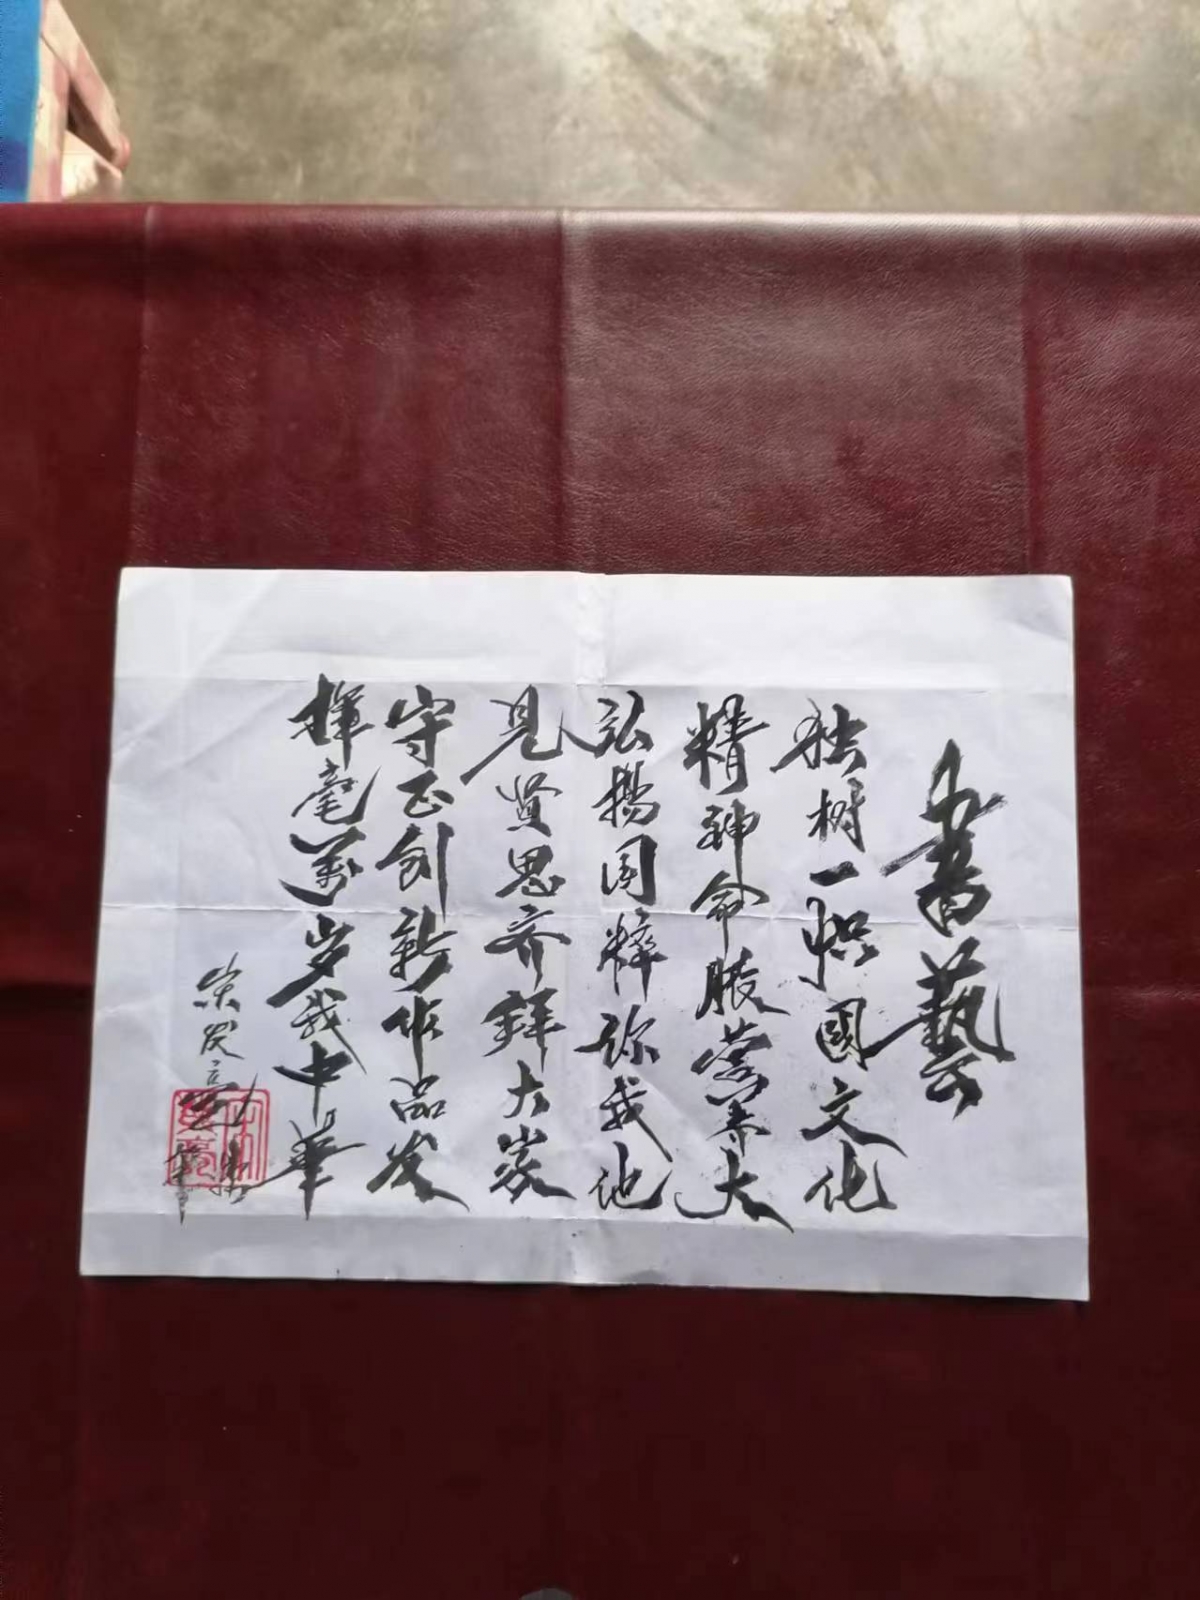 書藝
独树一帜國文化
精神命脉营养大
弘揚国粹我他
見贤思齐拜大家
守正创新作品发
揮毫萬岁我中華
宋发亮